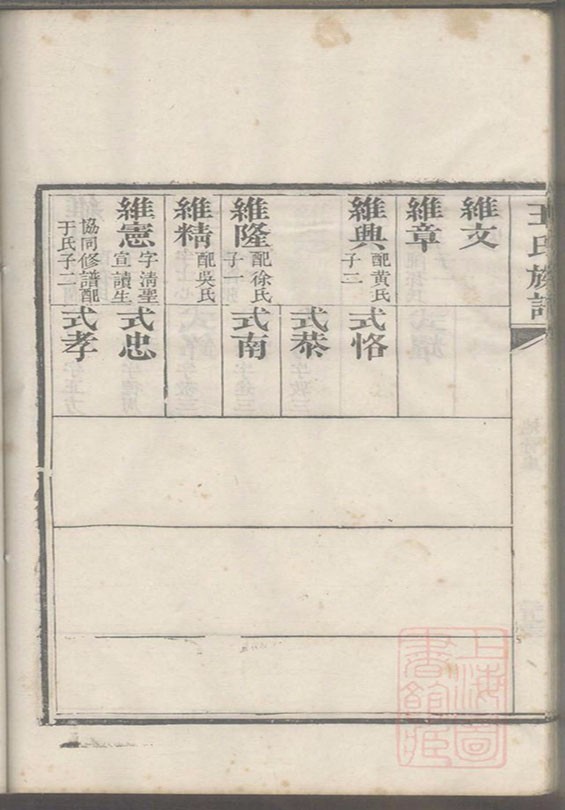 王氏族譜
維文
維章
維興
配黃氏
子三
式恪
式恭
維隆
配徐氏
子一
式南
維精
配吳氏
維憲
字清聖
宣讀生
式忠
協同修譜配
于氏子二
式孝
上海圖
書館藏